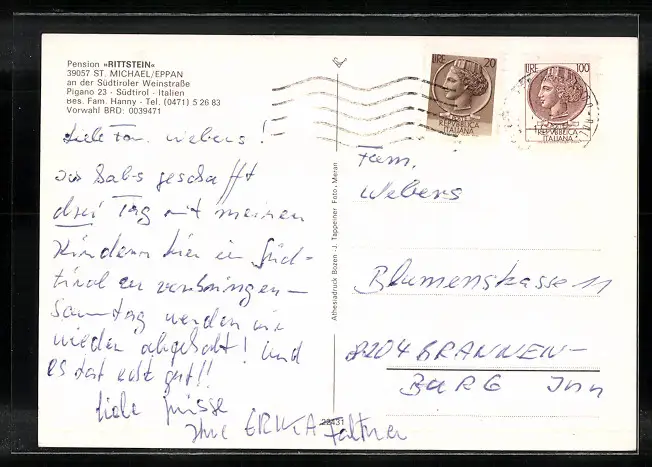 Pension »RITTSTEIN«
39057 ST. MICHAEL/EPPAN
an der Südtiroler Weinstraße
Pigano 23 - Südtirol - Italien
Bes. Fam. Hanny - Tel. (0471) 5 26 83
Vorwahl BRD: 0039471
LIRE 20
REPUBBLICA
ITALIANA
LIRE 100
REPUBBLICA
ITALIANA
Liebe Fam. Webers!
geschafft
drei Tag mit meinen
Kindern hier in Süd-
tirol zu verbringen –
Samstag werden wir
wieder abgeholt! Und
es tat gut!!
Liebe Grüsse
Ihre ERIKA Faltner
Athesiadruck Bozen - J. Tappeiner Foto, Meran
22431
Fam.
Webers
Blumenstrasse 11
8204 BRANNEN-
BURG Inn